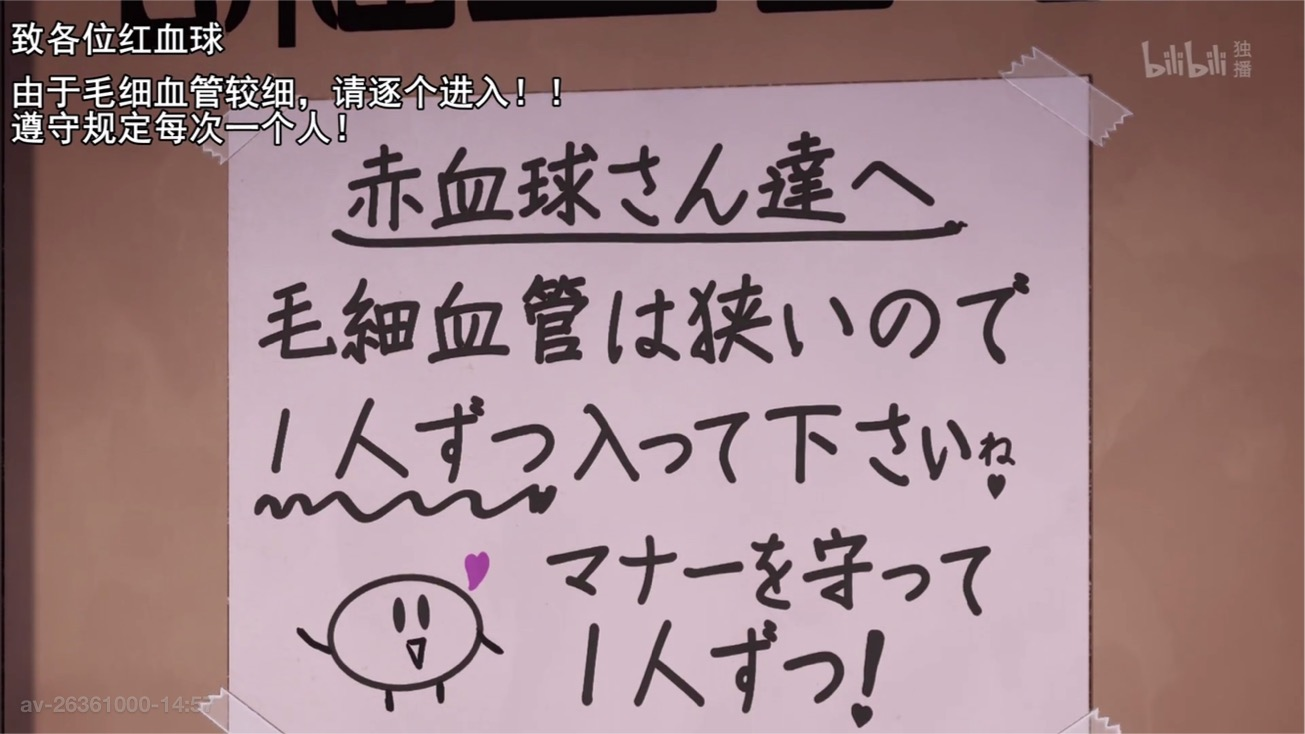 致各位红血球
由于毛细血管较细，请逐个进入！！
遵守规定每次一个人！
bilibili 独播
赤血球さん達へ
毛細血管は狭いので
1人ずつ入って下さいね
マナーを守って
1人ずつ!